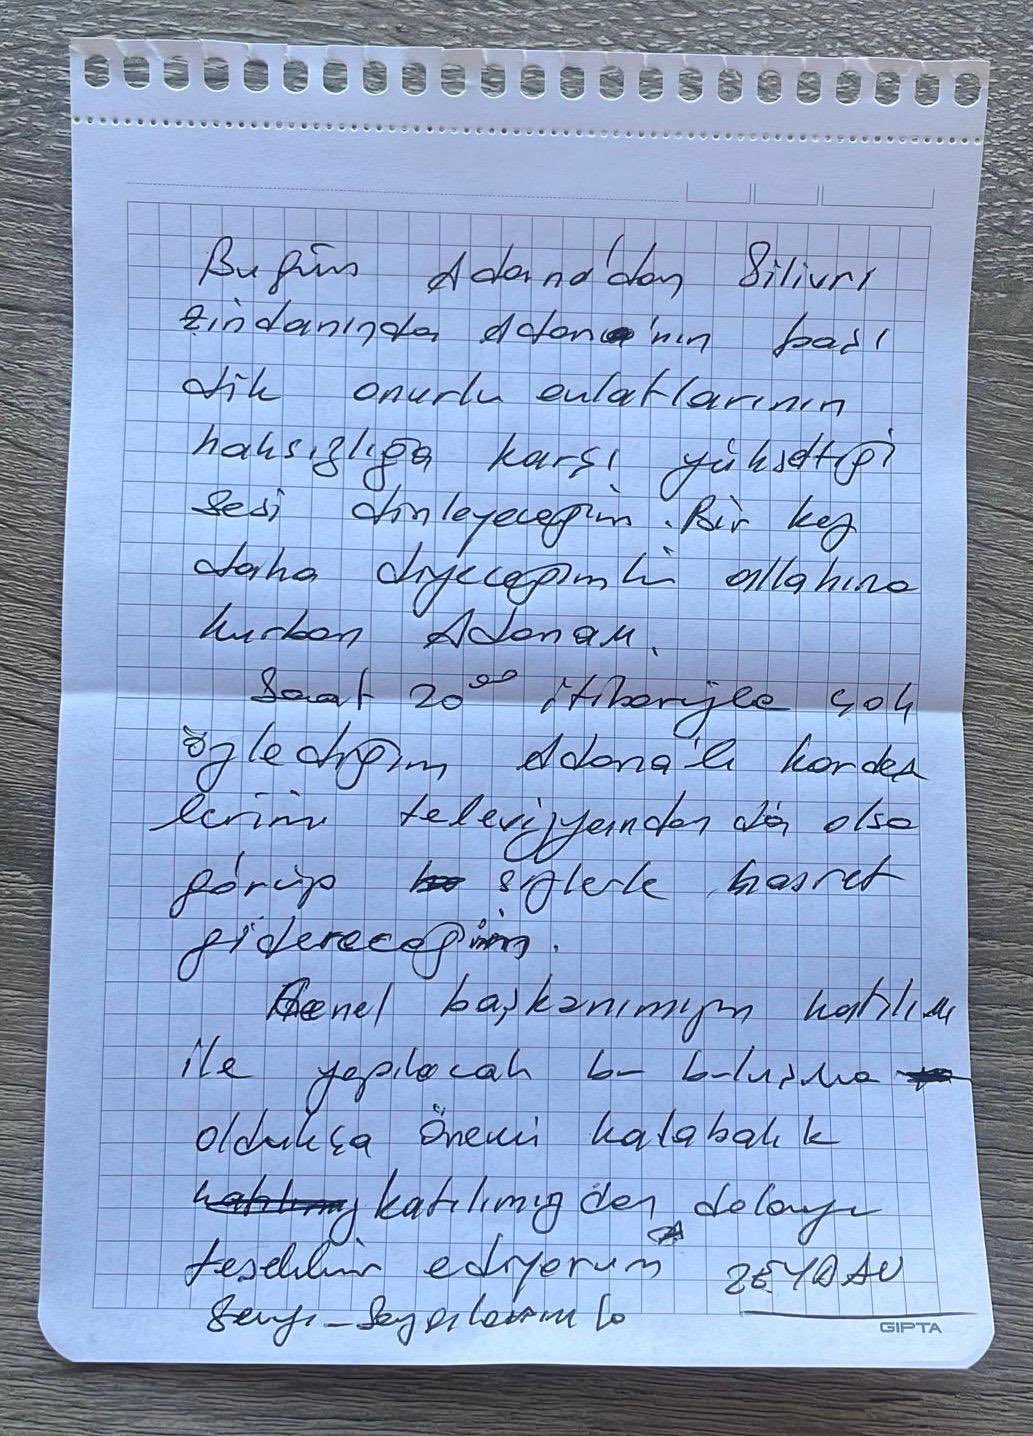 Bugün Adana'dan Silivri
zindanında Adana'nın başı
dik onurlu evlatlarının
haksızlığa karşı yükselttiği
sesi dinleyeceğim. Bir kez
daha diyeceğimki allahına
kurban Adanam.
Saat 20⁰⁰ itibariyle çok
özlediğim Adana'lı kardeş
lerimi televizyondan da olsa
görüp sizlerle hasret
gidereceğim.
Genel başkanımızın katılımı
ile yapılacak bu buluşma
oldukça önemli kalabalık
katılımızdan dolayı
teşekkür ediyorum ZEYDAN
Sevgi-Saygılarımla
GIPTA